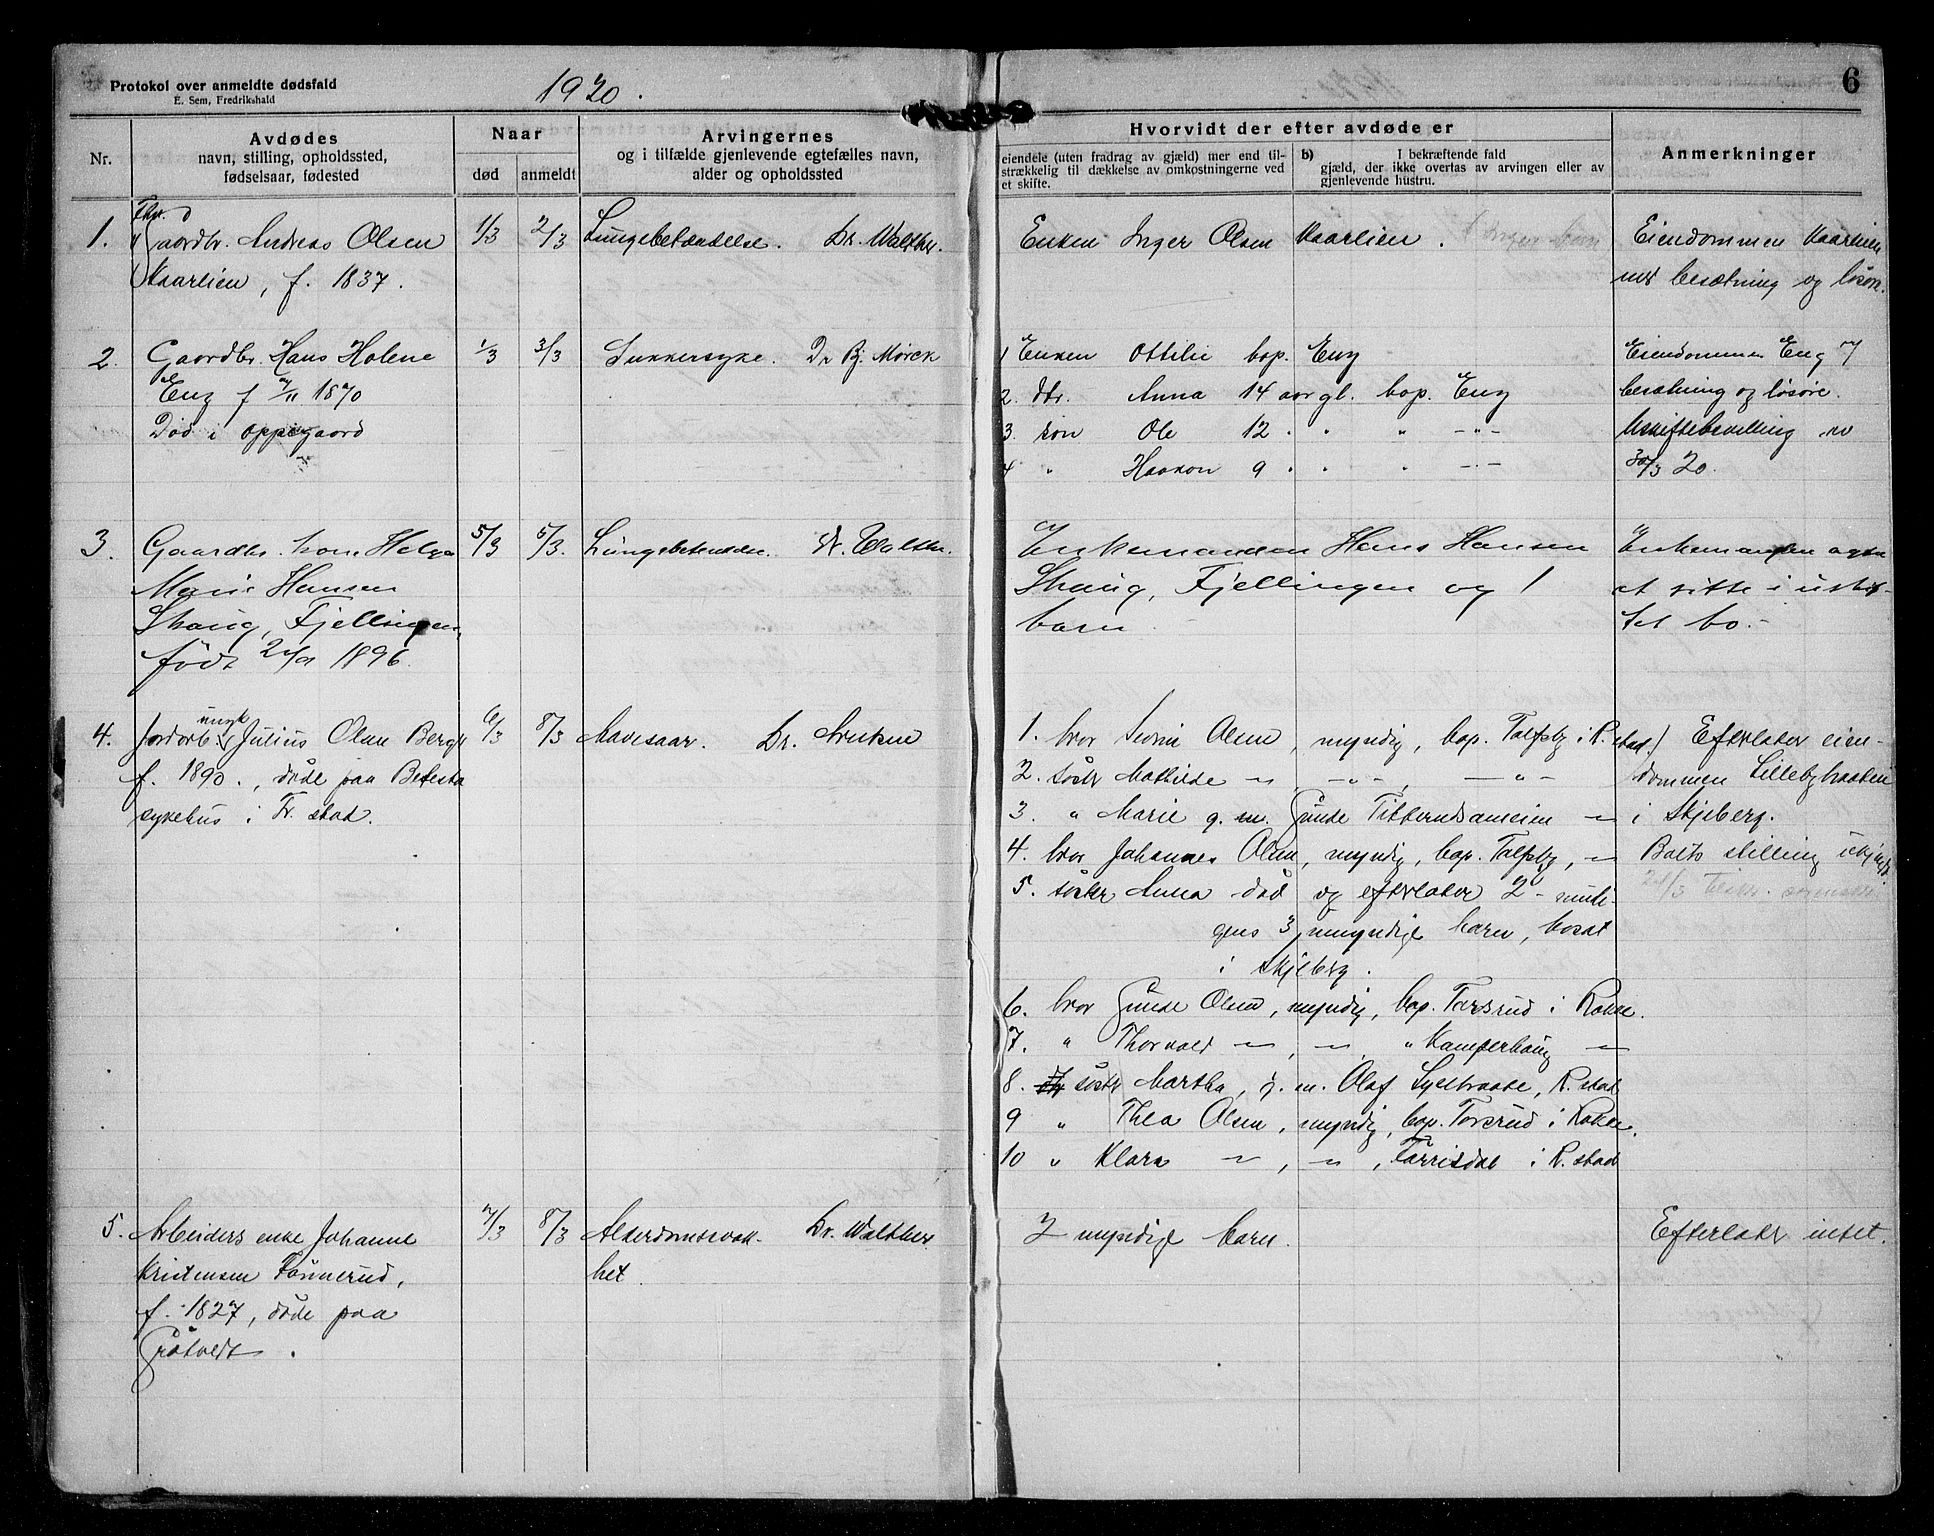 Protokol over anmeldte dødsfald
E. Sem, Fredrikshald
1920.
6
Nr.
Avdødes
navn, stilling, opholdssted,
fødselsaar, fødested
Naar
død
anmeldt
Arvingernes
og i tilfælde gjenlevende egtefælles navn,
alder og opholdssted
Hvorvidt der efter avdøde er
eiendele (uten fradrag av gjæld) mer end til-
strækkelig til dækkelse av omkostningerne ved
et skifte.
b) I bekræftende fald
gjæld, der ikke overtas av arvingen eller av
gjenlevende hustru.
Anmerkninger
1. Gaardbr. Andreas Olsen
Kaarlien, f. 1837.
1/3 2/3 Lungebetændelse. Dr. Walther.
Enken Inger Olsen Kaarlien.
Eiendommen Kaarlien
med besætning og løsøre.
2. Gaardbr. Hans Holene
Eng f 7/11 1870
Død i oppegaard
1/3 3/3 Sukkersyke. Dr Bj. Mørck
1 Enken Ottilie bop. Eng
2. dtr. Anna 14 aar gl. bop. Eng
3. søn Ole 12 " " " -"-
4 " Haakon 9 " " " -"-
Eiendommen Eng
besætning og løsøre.
Uskiftebevilling av
30/3 20.
3. Gaardbr. kone Helga
Marie Hansen
Skaug, Fjellingen,
født 1896.
5/3 6/3. Lungebetændelse. Dr. Walther.
Enkemanden Hans Hansen
Skaug, Fjellingen og 1
barn.
Enkemanden agter
at sitte i uskif-
tet bo.-
4. Jordarb. ungk. Julius Olsen Berg
f. 1890., døde paa Betesta
sykehus i Fr. stad.
6/3 8/3 Mavesaar. Dr.
1. bror Olsen, myndig, bop. Talfsby i R. stad.
2. søster Mathilde — -"-, —"—
3. " Marie g. m. Gunde —
4. bror Johannes Olsen, myndig, bop. Talfsby, —
5. søster Anna død og efterlater 2-muli-
gens 3 umyndige barn, bosat
i Skjeberg.
6. bror Gunde Olsen, myndig, bop. Torsrud i Rokke.
7. " Thorvald —, —, " Kamperhaug —
8. søster Martha, g. m. Olaf, R. stad
9 " Thea Olsen, myndig, bop. Torsrud i Rokke.
10 " Klara —, —, i R. stad
Efterlater eien-
dommen Lillebybraaten
i Skjeberg.
Boets stilling ukjendt
5. Arbeiders enke Johanne
Kristensen Tønnerud,
f. 1827, døde paa
Grøtvedt.
7/3 8/3 Alderdomssvak-
het. Dr. Walther.
2 myndige barn.
Efterlater intet.